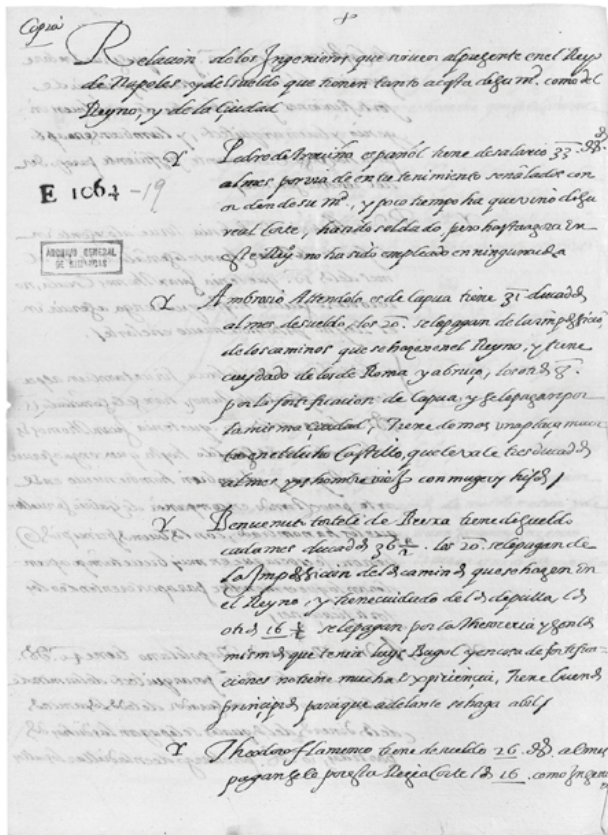 Copia
Relacion de los Ingenieros que siruen al presente en el Reyno
de Napoles, y del sueldo que tienen tanto acosta de su mᵈ. como del
Reyno, y de la Ciudad
Pedro de español tiene de salario 33 ds.
al mes por via de entretenimiento señalados con
orden de su mᵈ., y poco tiempo ha que vino de su
real Corte, ha sido soldado, pero hasta agora en
este Reyno no ha sido empleado en ninguna cosa
E 1064-19
ARCHIVO GENERAL
DE SIMANCAS
Ambrosio Attendolo es de Capua tiene 31 ducados
al mes de sueldo, los 20. se le pagan de la impossicion
de los caminos que se hazen en el Reyno, y tiene
cuydado de los de Roma y abruço, los otros
por la fortificacion de Capua y se le pagan por
la misma ciudad, tiene de mas una plaça muerta
en el dicho Castillo, que le vale tres ducados
al mes y es hombre viejo con muger y hijos /
Benuenuto tortele de Brexa tiene de sueldo
cada mes ducados 36 . los 20. se le pagan de
la Impossicion de los caminos que se hazen en
el Reyno, y tiene cuidado de los de pulla, los
otros 16 se le pagan por la Thesoreria y son los
mismos que tenia y en cosa de fortifica-
ciones no tiene mucha expiriencia, tiene buenos
principios para que adelante se haga abil /
Theodoro flamenco tiene de sueldo 26. ds. al mes
pagansele por esta Regia Corte los 16. como Ingeniero